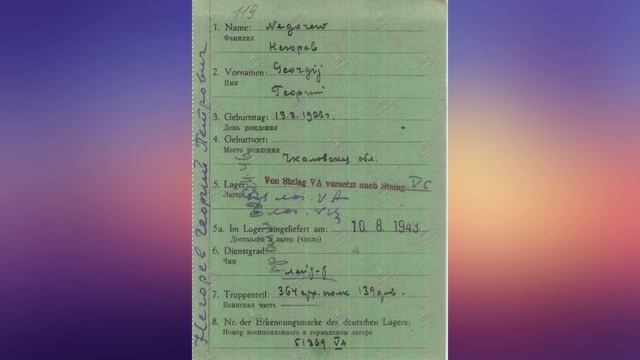 119
1. Name: Negorew
Фамилия
Негорев
2. Vornamen: Georgij
Имя
Георгий
3. Geburtstag: 13.3.1923г.
День рождения
4. Geburtsort:
Место рождения
Чкаловская обл.
5. Lager: Von Stalag VA versetzt nach Stalag VC
Лагерь
лаг. VA
лаг. VЦ
5a. Im Lager eingeliefert am: 10.8.1943
Доставлен в лагерь (число)
6. Dienstgrad:
Чин
7. Truppenteil: 364 стр. полк 139 див.
Воинская часть
8. Nr. der Erkennungsmarke des deutschen Lagers:
Номер военнопленного в германском лагере
51369 VA
Негорев Георгий Петрович